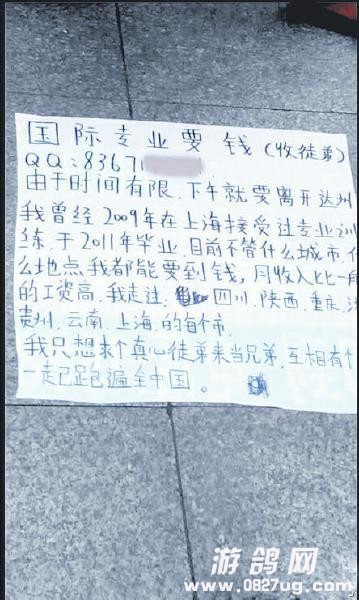 国际专业要钱(收徒弟)
QQ:83671
由于时间有限.下午就要离开达州
我曾经2009年在上海接受过专业训
练.于2011年毕业.目前不管什么城市.什
么地点我都能要到钱.月收入比一般
的工资高.我走过.四川.陕西.重庆.
贵州.云南.上海.的每个市.
我只想求个真心徒弟来当兄弟.互相有个
一起已跑遍全中国。
游鸽网
www.0827ug.com